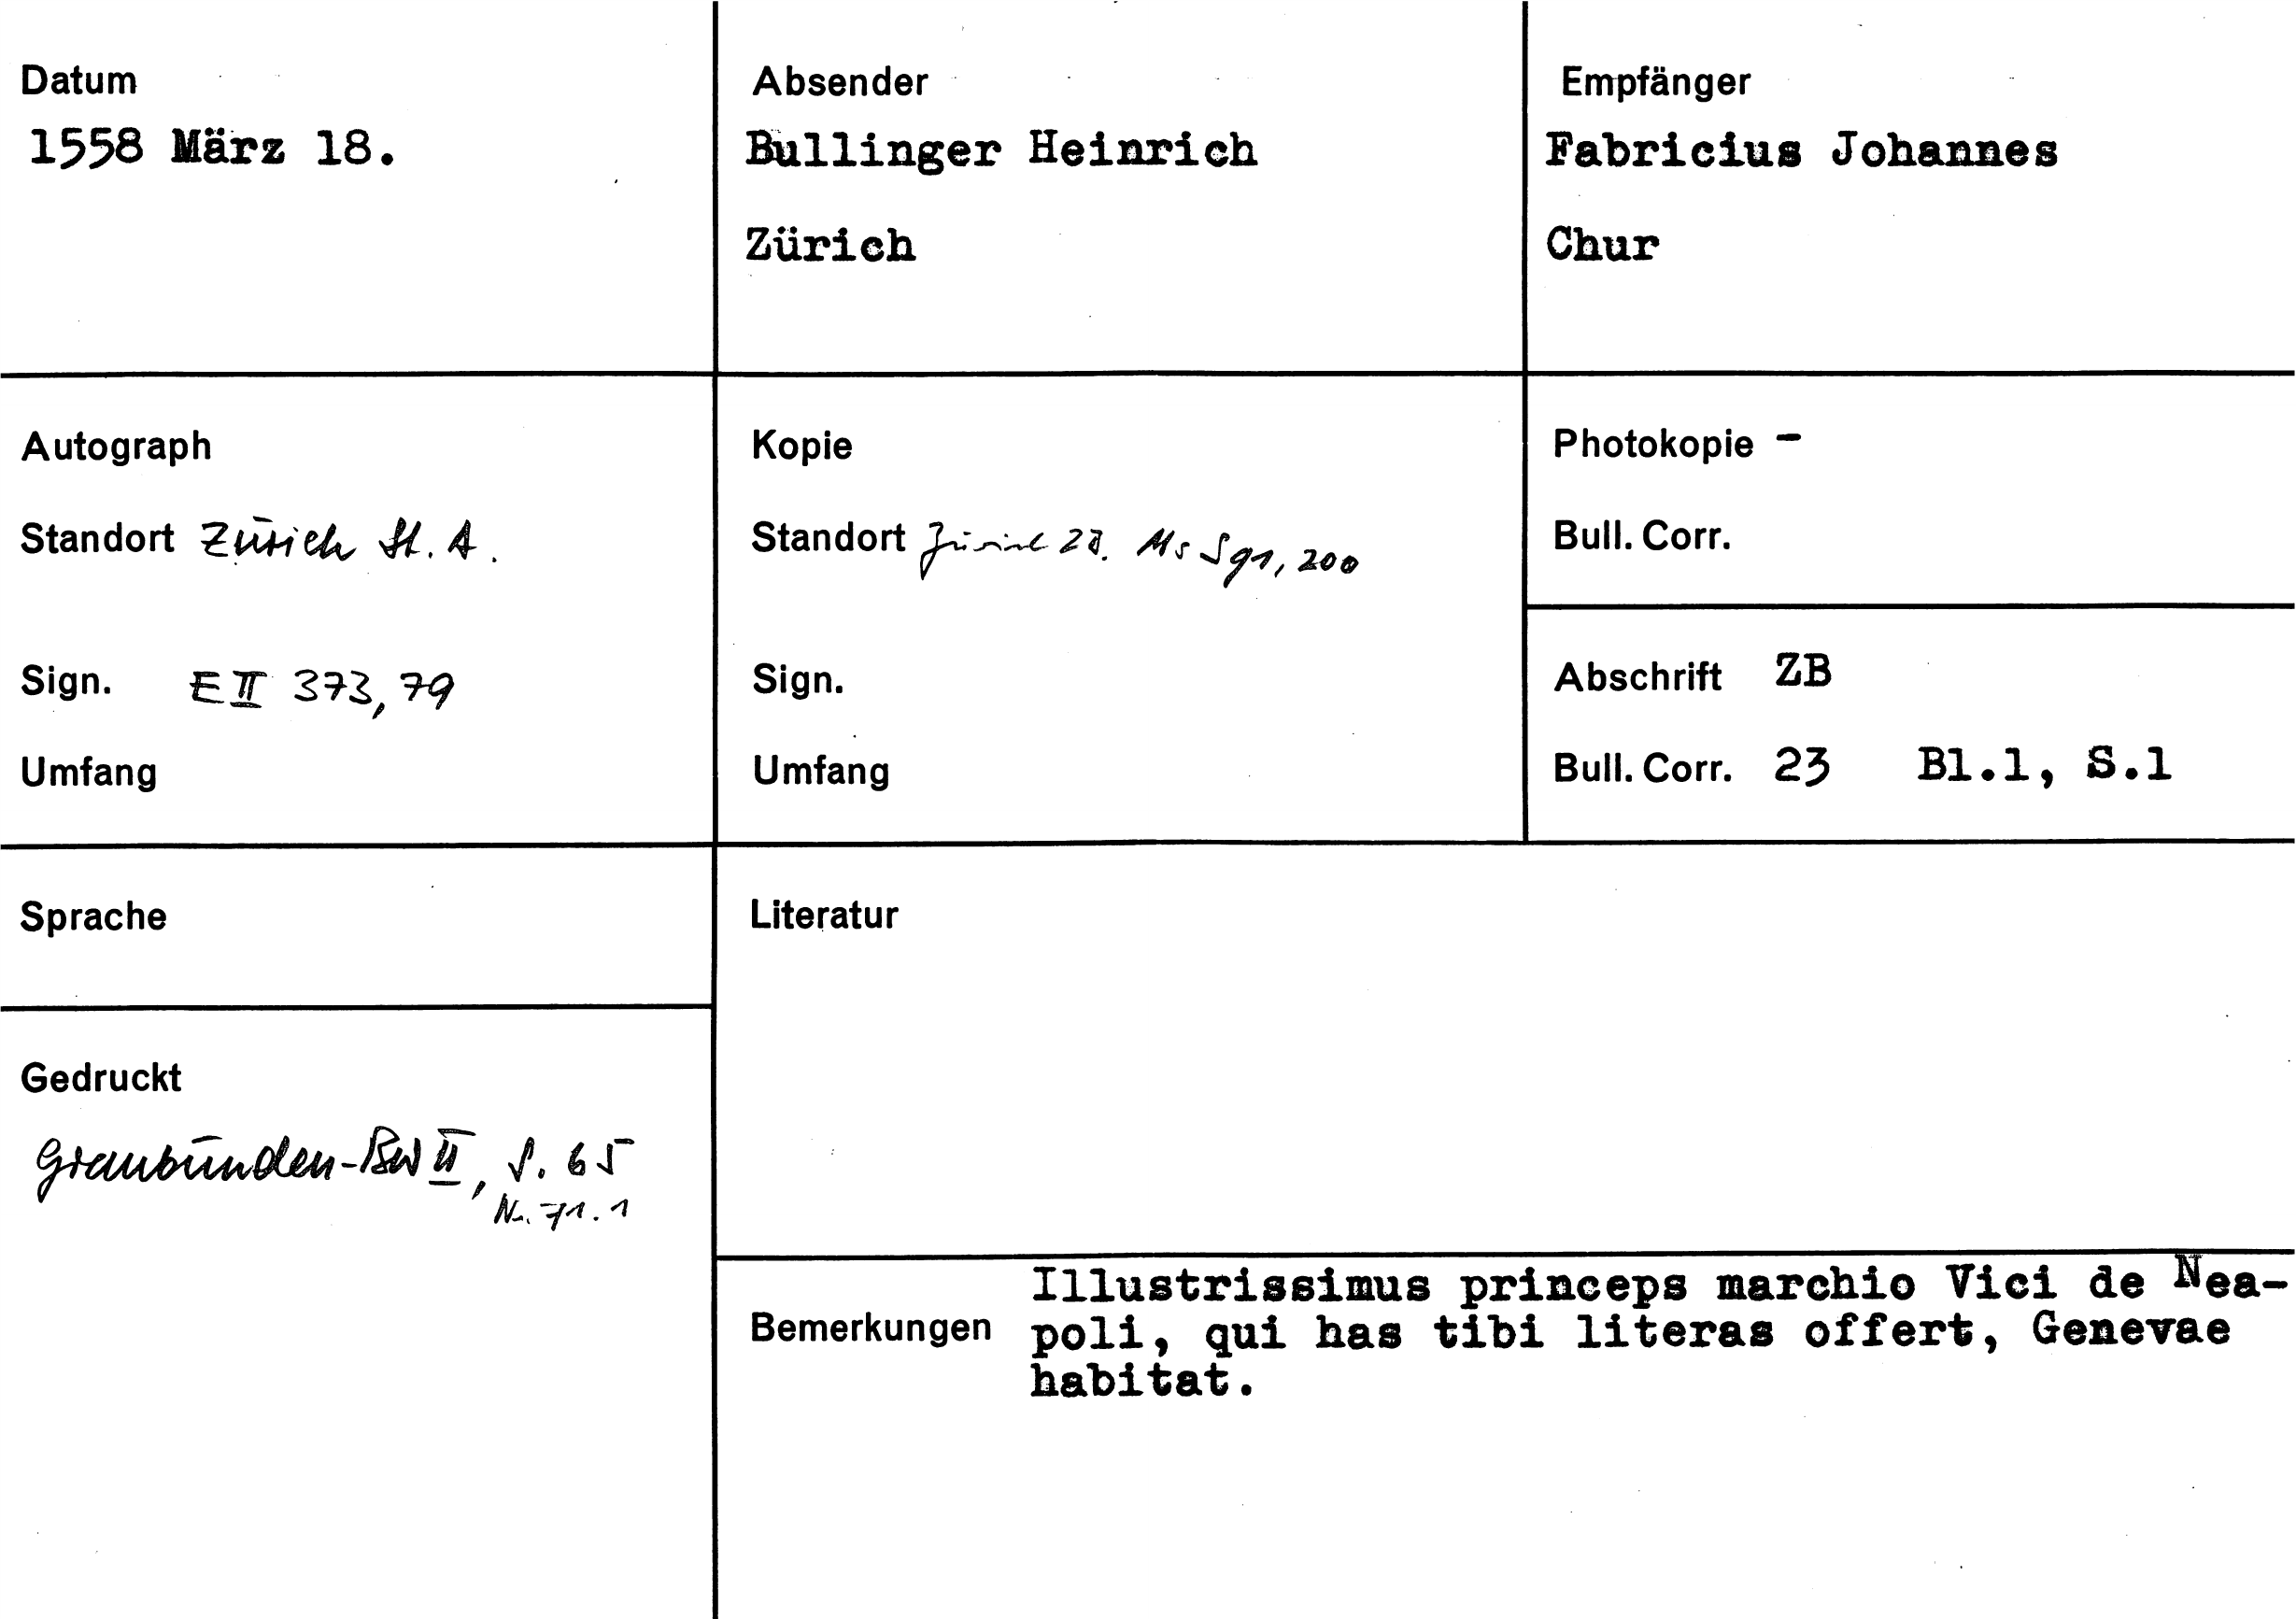 Datum
1558 März 18.
Absender
Bullinger Heinrich
Zürich
Empfänger
Fabricius Johannes
Chur
Autograph
Standort Zürich St. A.
Sign. E II 373, 79
Umfang
Kopie
Standort Zürich ZB. Ms S 91, 200
Sign.
Umfang
Photokopie -
Bull. Corr.
Abschrift ZB
Bull. Corr. 23 Bl.1, S.1
Sprache
Literatur
Gedruckt
Graubünden-BW II, S. 65
Nr. 71.1
Bemerkungen
Illustrissimus princeps marchio Vici de Nea-
poli, qui has tibi literas offert, Genevae
habitat.